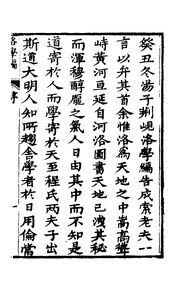 癸丑冬湯子荆峴洛學編告成索老夫一
言以弁其首余惟洛為天地之中嵩高聳
峙黃河亘延自河洛圖書天地已洩其秘
而渾穆醇龎之氣人日由其中而不知是
道寄於人而學寄於天至程氏兩夫子出
斯道大明人知所趨舍學者於日用倫常
洛學編
序